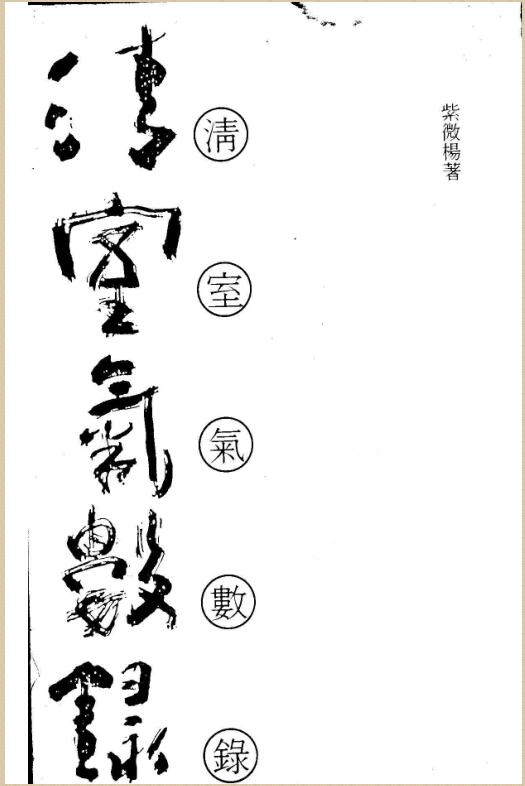 紫微楊著
清室氣數錄
清室氣數錄